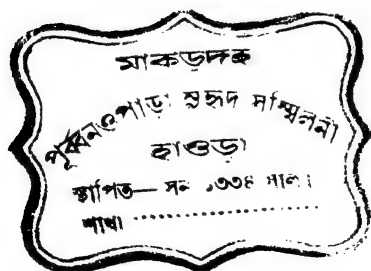 মাকড়দহ
পূর্ব্বন্নপাড়া সুহৃদ সম্মিলনী
হাওড়া
স্থাপিত— সন ১৩৩৪ সাল।
শাখা ....................